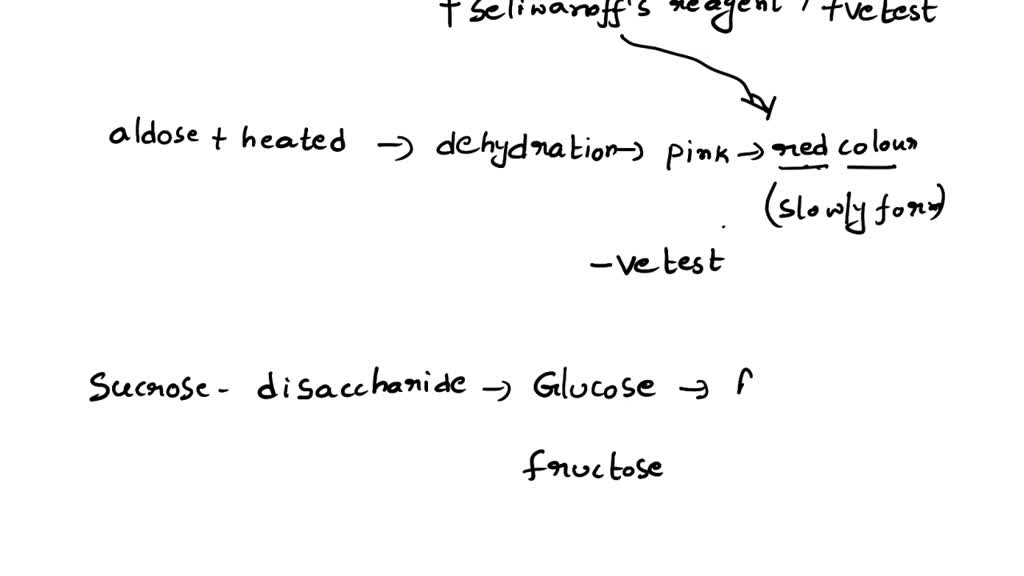 + Seliwanoff's reagent / +ve test
aldose + heated → dehydration → pink → red colour
(slowly form)
-ve test
Sucrose - disaccharide → Glucose →
fructose